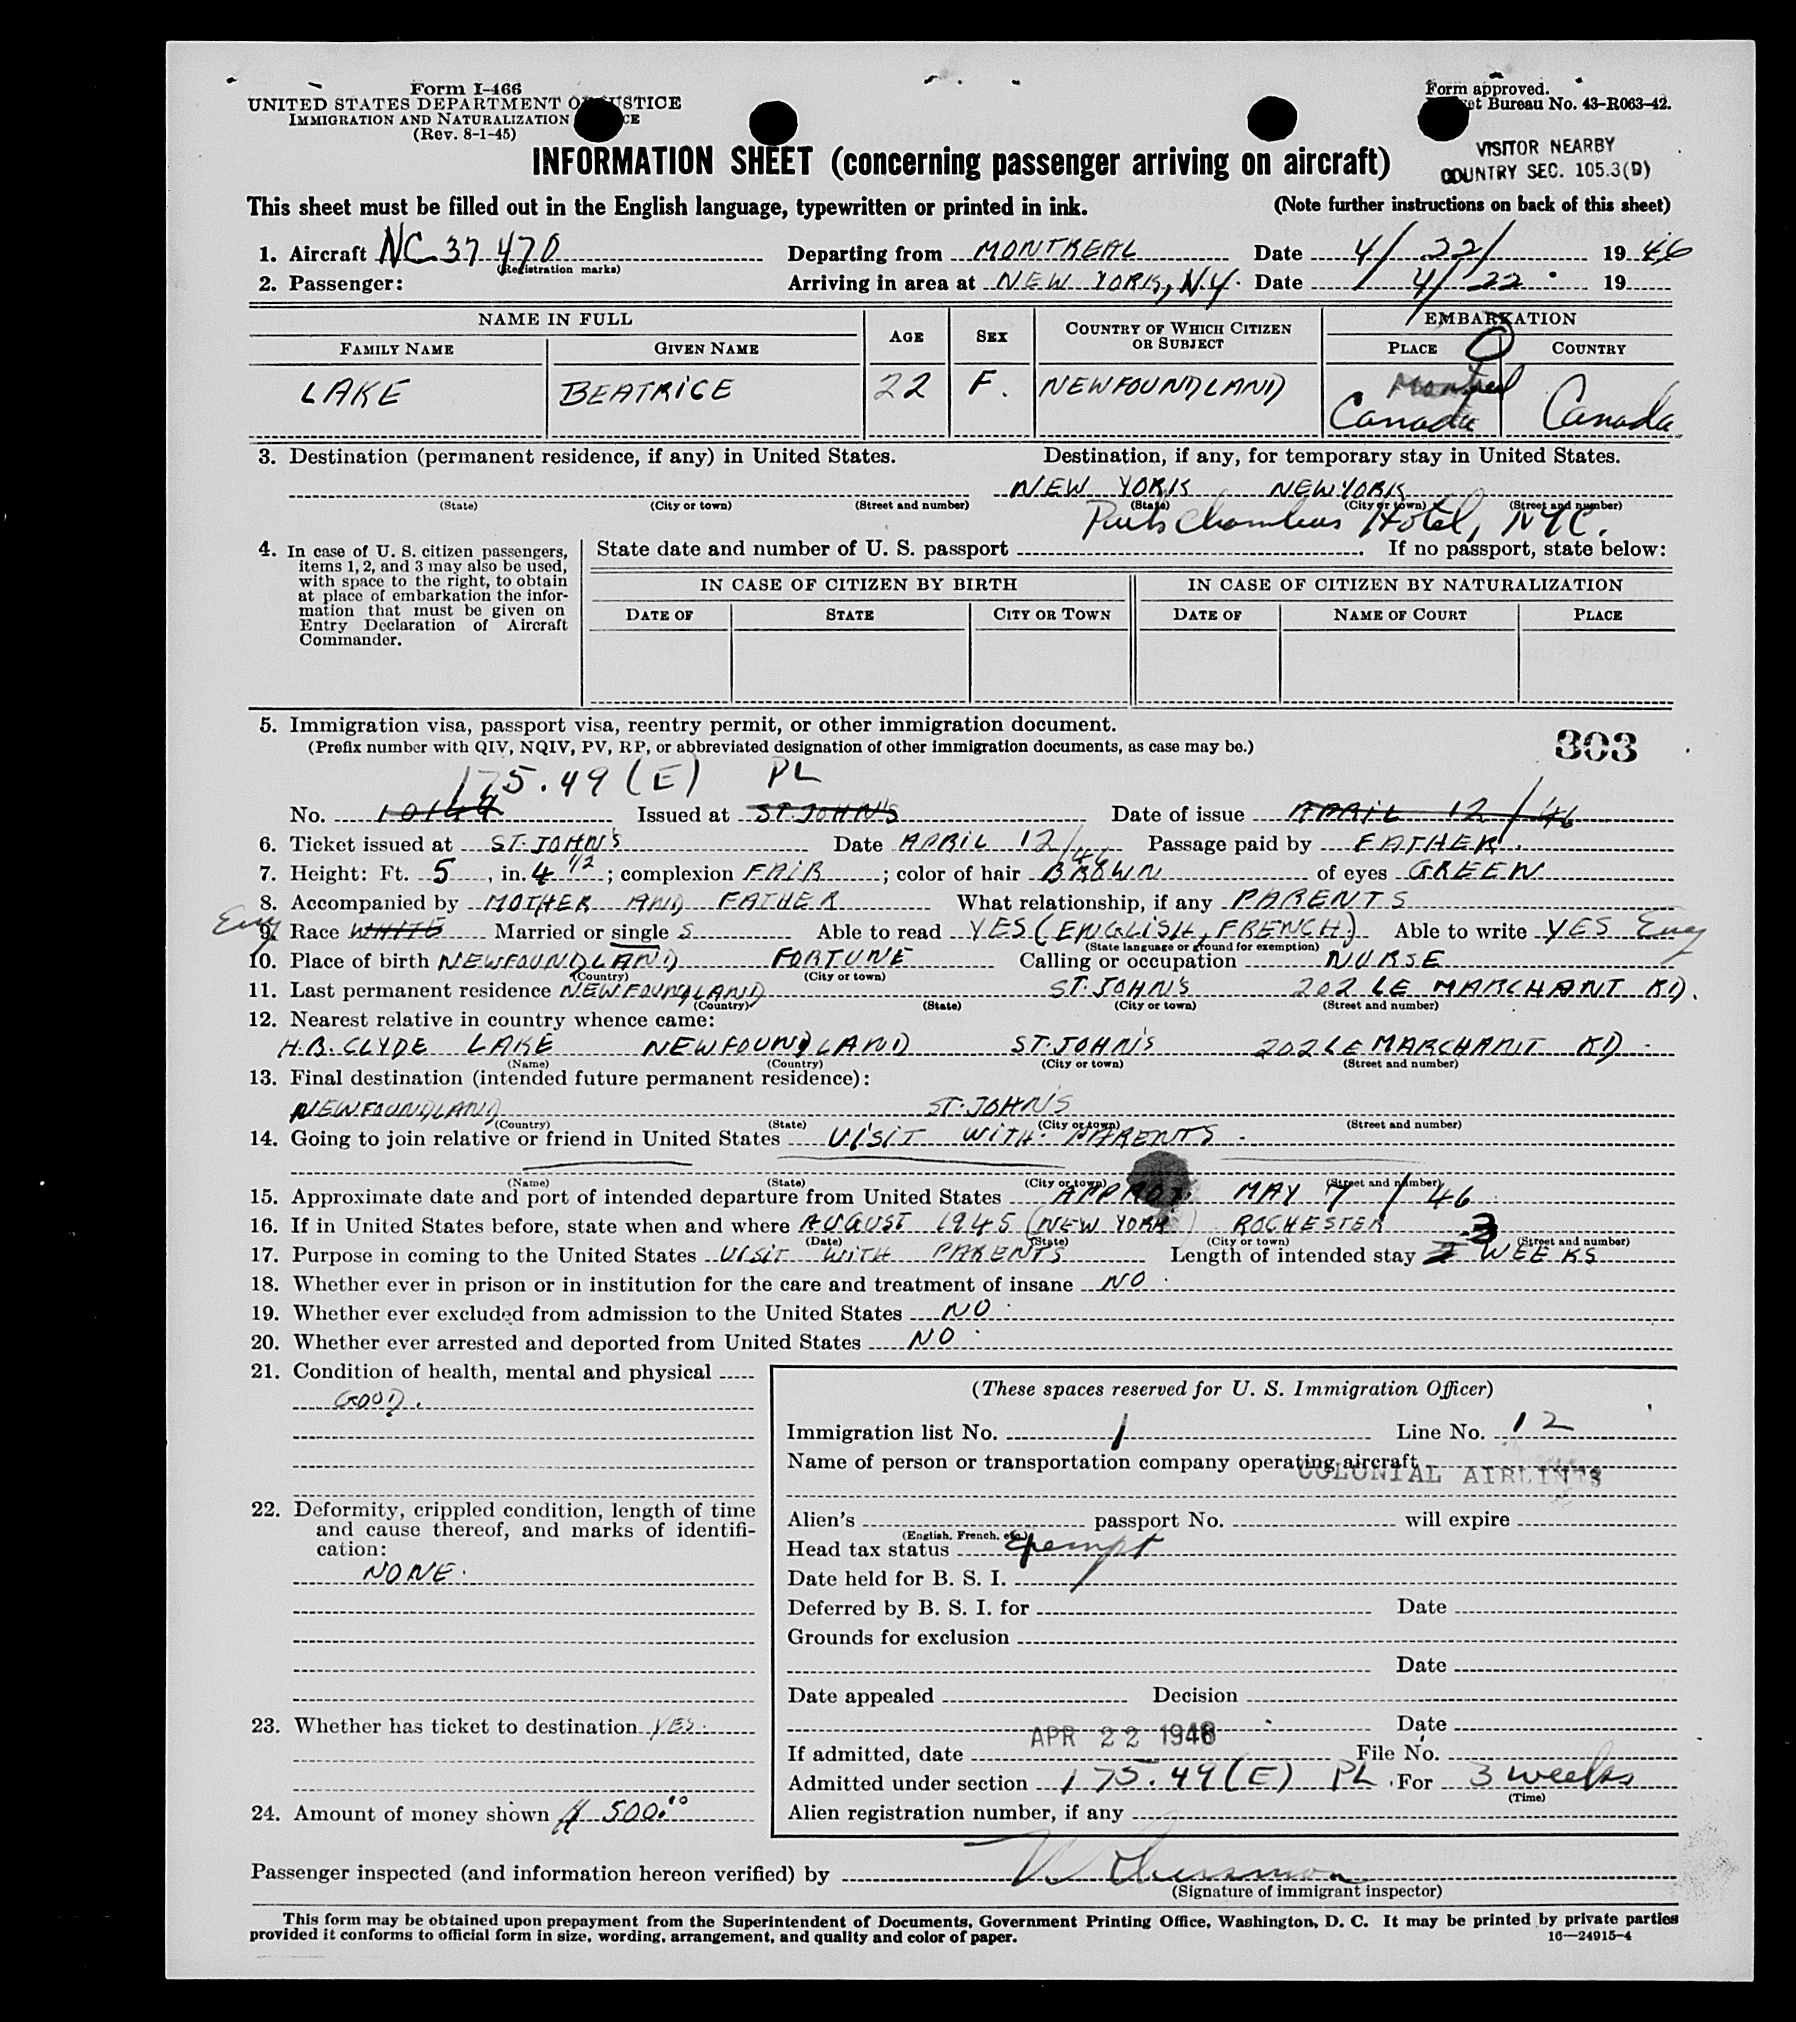 Form I-466
UNITED STATES DEPARTMENT OF JUSTICE
IMMIGRATION AND NATURALIZATION
(Rev. 8-1-45)
Form approved.
Bureau No. 43-R063-42.
VISITOR NEARBY
COUNTRY SEC. 105.3(D)
INFORMATION SHEET (concerning passenger arriving on aircraft)
This sheet must be filled out in the English language, typewritten or printed in ink. (Note further instructions on back of this sheet)
1. Aircraft NC 37470 Departing from MONTREAL Date 4/22/ 1946
(Registration marks)
2. Passenger: Arriving in area at NEW YORK, N.Y. Date 4/22 19
NAME IN FULL AGE SEX COUNTRY OF WHICH CITIZEN OR SUBJECT EMBARKATION
FAMILY NAME GIVEN NAME PLACE COUNTRY
LAKE BEATRICE 22 F. NEWFOUNDLAND Montreal Canada Canada
3. Destination (permanent residence, if any) in United States. Destination, if any, for temporary stay in United States.
NEW YORK NEW YORK
(State) (City or town) (Street and number) (State) (City or town) (Street and number)
Hotel, NYC.
4. In case of U. S. citizen passengers, items 1, 2, and 3 may also be used, with space to the right, to obtain at place of embarkation the information that must be given on Entry Declaration of Aircraft Commander.
State date and number of U. S. passport If no passport, state below:
IN CASE OF CITIZEN BY BIRTH IN CASE OF CITIZEN BY NATURALIZATION
DATE OF STATE CITY OR TOWN DATE OF NAME OF COURT PLACE
5. Immigration visa, passport visa, reentry permit, or other immigration document.
(Prefix number with QIV, NQIV, PV, RP, or abbreviated designation of other immigration documents, as case may be.)
303
175.49 (E) PL
No. 10149 Issued at ST. JOHN'S Date of issue APRIL 12/46
6. Ticket issued at ST. JOHN'S Date APRIL 12/46 Passage paid by FATHER.
7. Height: Ft. 5, in. 4 1/2; complexion FAIR; color of hair BROWN of eyes GREEN
8. Accompanied by MOTHER AND FATHER What relationship, if any PARENTS
Eng
9. Race WHITE Married or single S Able to read YES (ENGLISH, FRENCH.) Able to write YES Eng
(State language or ground for exemption)
10. Place of birth NEWFOUNDLAND FORTUNE Calling or occupation NURSE
(Country) (City or town)
11. Last permanent residence NEWFOUNDLAND ST. JOHN'S 202 LE MARCHANT RD.
(Country) (State) (City or town) (Street and number)
12. Nearest relative in country whence came:
H.B. CLYDE LAKE NEWFOUNDLAND ST. JOHN'S 202 LE MARCHANT RD.
(Name) (Country) (City or town) (Street and number)
13. Final destination (intended future permanent residence):
NEWFOUNDLAND ST. JOHN'S
(Country) (State) (City or town) (Street and number)
14. Going to join relative or friend in United States VISIT WITH PARENTS.
(Name) (State) (City or town) (Street and number)
15. Approximate date and port of intended departure from United States APPROX. MAY 7/46
16. If in United States before, state when and where AUGUST 1945 (NEW YORK) ROCHESTER
(Date) (State) (City or town) (Street and number)
17. Purpose in coming to the United States VISIT WITH PARENTS Length of intended stay 3 WEEKS
18. Whether ever in prison or in institution for the care and treatment of insane NO.
19. Whether ever excluded from admission to the United States NO.
20. Whether ever arrested and deported from United States NO.
21. Condition of health, mental and physical
GOOD.
22. Deformity, crippled condition, length of time and cause thereof, and marks of identification:
NONE.
23. Whether has ticket to destination YES.
24. Amount of money shown 500.00
(These spaces reserved for U. S. Immigration Officer)
Immigration list No. 1 Line No. 12
Name of person or transportation company operating aircraft
COLONIAL AIRLINES
Alien's passport No. will expire
(English, French, etc.)
Head tax status Exempt
Date held for B. S. I.
Deferred by B. S. I. for Date
Grounds for exclusion
Date
Date appealed Decision
Date
If admitted, date APR 22 1946 File No.
Admitted under section 175.49 (E) PL. For 3 weeks
(Time)
Alien registration number, if any
Passenger inspected (and information hereon verified) by
(Signature of immigrant inspector)
This form may be obtained upon prepayment from the Superintendent of Documents, Government Printing Office, Washington, D. C. It may be printed by private parties
provided it conforms to official form in size, wording, arrangement, and quality and color of paper. 16—24915-4